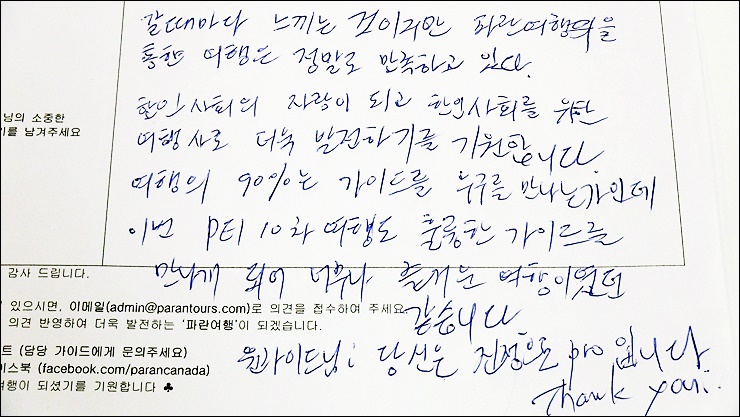 갈때마다 느끼는 것이지만 파란여행을
통한 여행은 정말로 만족하고 있다.
한인사회의 자랑이 되고 한인사회를 위한
여행사로 더욱 발전하기를 기원합니다.
여행의 90%는 가이드를 누구를 만나는가인데
이번 PEI 10차 여행도 훌륭한 가이드를
만나게 되어 너무나 즐거운 여행이였던
같습니다
원가이드님! 당신은 진정으로 pro입니다
Thank you!.
님의 소중한
기를 남겨주세요
감사 드립니다.
있으시면, 이메일(admin@parantours.com)로 의견을 접수하여 주세요
의견 반영하여 더욱 발전하는 '파란여행'이 되겠습니다.
트 (담당 가이드에게 문의주세요)
이스북 (facebook.com/parancanada)
여행이 되셨기를 기원합니다 ♣